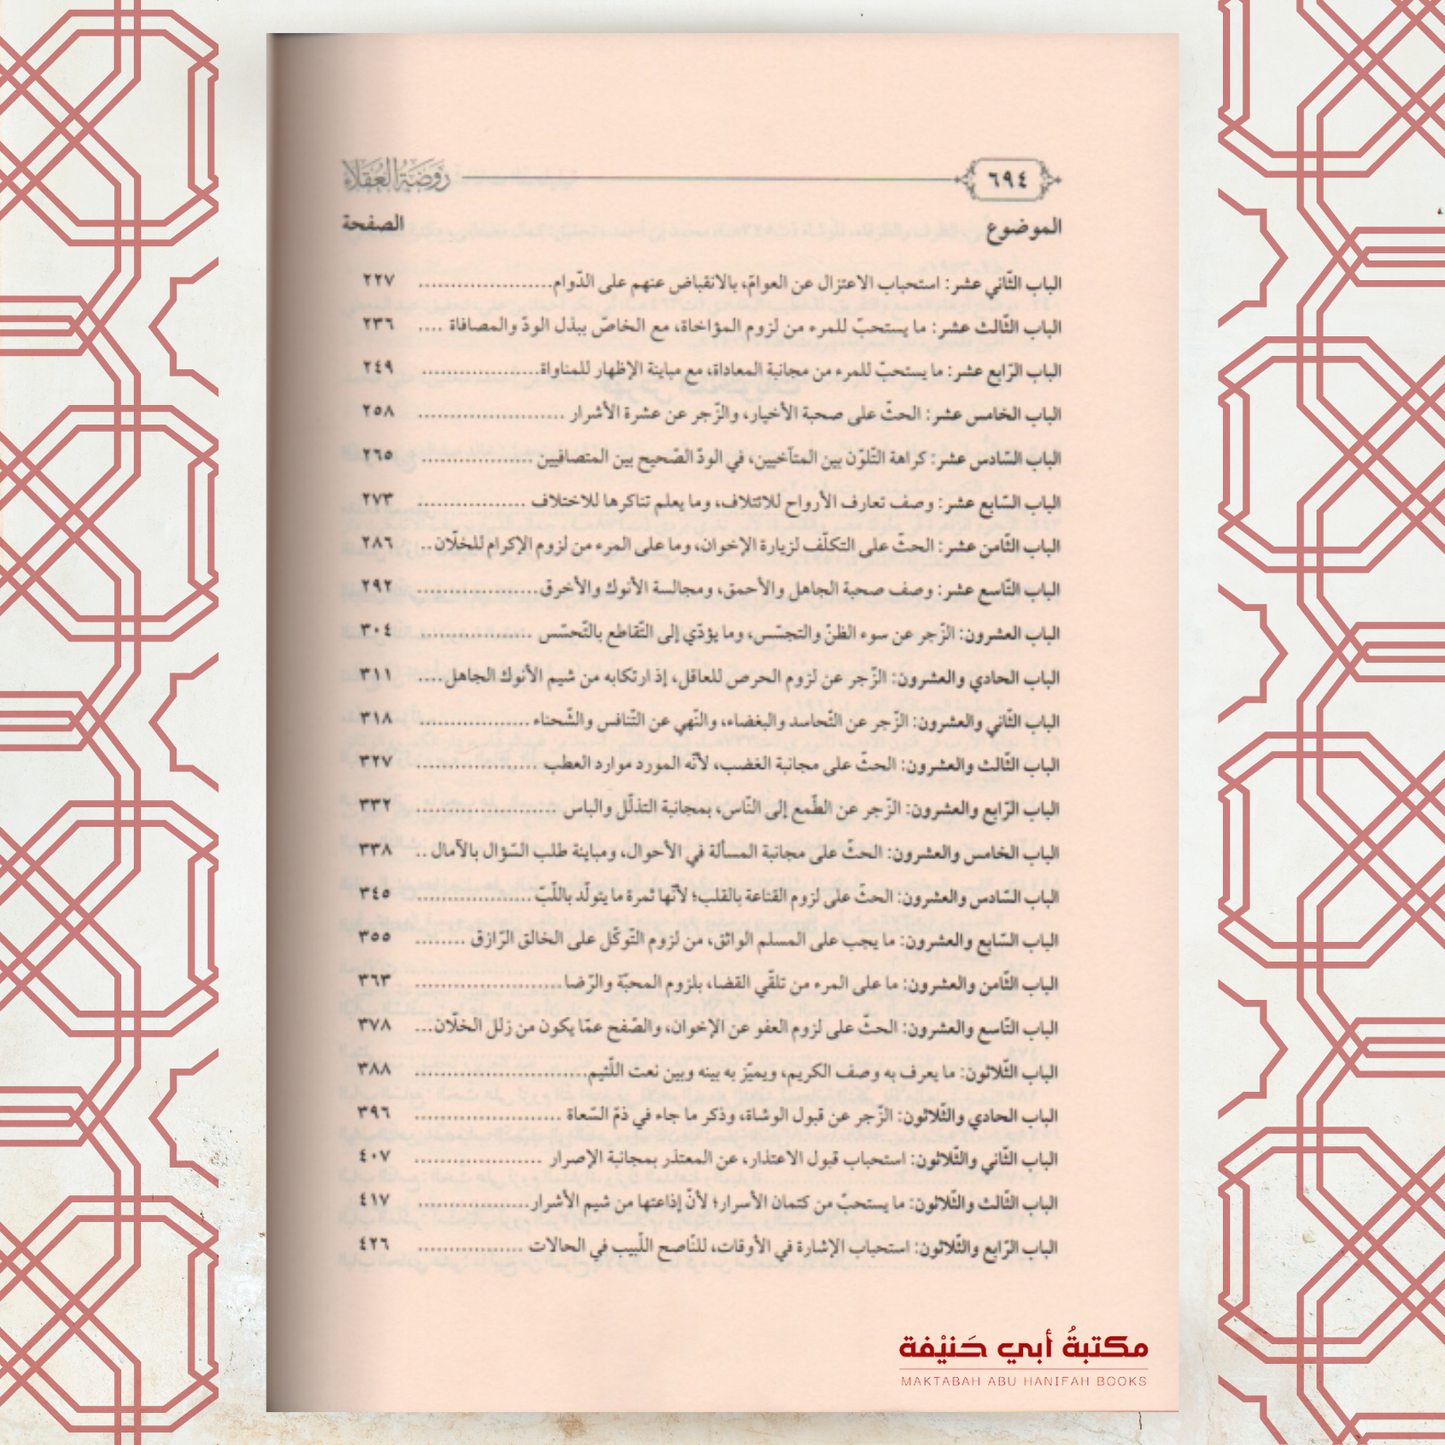 ٦٩٤ روضة العقلاء
الموضوع الصفحة
الباب الثّاني عشر: استحباب الاعتزال عن العوامّ، بالانقباض عنهم على الدّوام..................... ٢٢٧
الباب الثّالث عشر: ما يستحبّ للمرء من لزوم المؤاخاة، مع الخاصّ ببذل الودّ والمصافاة .... ٢٣٦
الباب الرّابع عشر: ما يستحبّ للمرء من مجانبة المعاداة، مع مباينة الإظهار للمناواة................... ٢٤٩
الباب الخامس عشر: الحثّ على صحبة الأخيار، والزّجر عن عشرة الأشرار ....................... ٢٥٨
الباب السّادس عشر: كراهة التّلوّن بين المتآخيين، في الودّ الصّحيح بين المتصافيين .................. ٢٦٥
الباب السّابع عشر: وصف تعارف الأرواح للائتلاف، وما يعلم تناكرها للاختلاف ................. ٢٧٣
الباب الثّامن عشر: الحثّ على التكلّف لزيارة الإخوان، وما على المرء من لزوم الإكرام للخلّان.. ٢٨٦
الباب التّاسع عشر: وصف صحبة الجاهل والأحمق، ومجالسة الأنوك والأخرق................... ٢٩٢
الباب العشرون: الزّجر عن سوء الظنّ والتجسّس، وما يؤدّي إلى التّقاطع بالتّحسّس .................. ٣٠٤
الباب الحادي والعشرون: الزّجر عن لزوم الحرص للعاقل، إذ ارتكابه من شيم الأنوك الجاهل.... ٣١١
الباب الثّاني والعشرون: الزّجر عن التّحاسد والبغضاء، والنّهي عن التّنافس والشّحناء .................. ٣١٨
الباب الثّالث والعشرون: الحثّ على مجانبة الغضب، لأنّه المورد موارد العطب ................... ٣٢٧
الباب الرّابع والعشرون: الزّجر عن الطّمع إلى النّاس، بمجانبة التذلّل والباس ...................... ٣٣٢
الباب الخامس والعشرون: الحثّ على مجانبة المسألة في الأحوال، ومباينة طلب السّؤال بالآمال .. ٣٣٨
الباب السّادس والعشرون: الحثّ على لزوم القناعة بالقلب؛ لأنّها ثمرة ما يتولّد باللّبّ.................. ٣٤٥
الباب السّابع والعشرون: ما يجب على المسلم الواثق، من لزوم التّوكّل على الخالق الرّازق ........ ٣٥٥
الباب الثّامن والعشرون: ما على المرء من تلقّي القضا، بلزوم المحبّة والرّضا....................... ٣٦٣
الباب التّاسع والعشرون: الحثّ على لزوم العفو عن الإخوان، والصّفح عمّا يكون من زلل الخلّان... ٣٧٨
الباب الثّلاثون: ما يعرف به وصف الكريم، ويميّز به بينه وبين نعت اللّئيم........................... ٣٨٨
الباب الحادي والثّلاثون: الزّجر عن قبول الوشاة، وذكر ما جاء في ذمّ السّعاة ....................... ٣٩٦
الباب الثّاني والثّلاثون: استحباب قبول الاعتذار، عن المعتذر بمجانبة الإصرار .................... ٤٠٧
الباب الثّالث والثّلاثون: ما يستحبّ من كتمان الأسرار؛ لأنّ إذاعتها من شيم الأشرار.................. ٤١٧
الباب الرّابع والثّلاثون: استحباب الإشارة في الأوقات، للنّاصح اللّبيب في الحالات ................. ٤٢٦
مكتبةُ أبي حَنيْفة
MAKTABAH ABU HANIFAH BOOKS